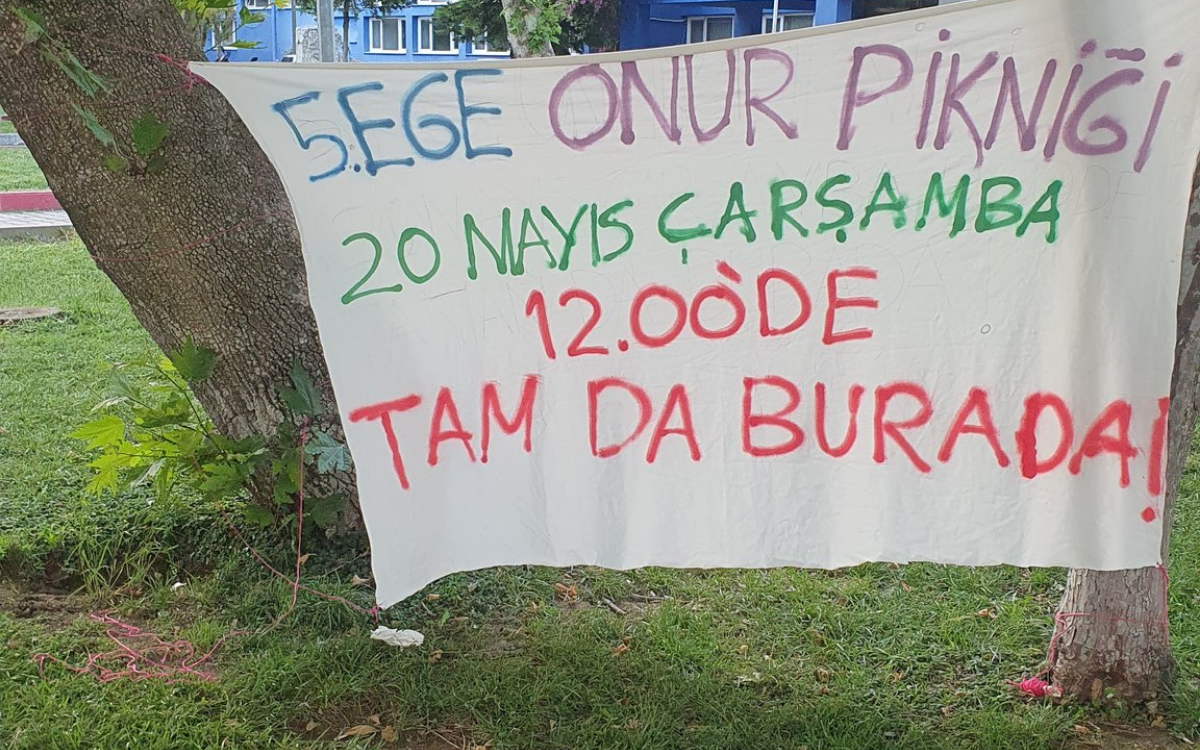 5.EGE ONUR PİKNİĞİ
20 MAYIS ÇARŞAMBA
12.00'DE
TAM DA BURADA!